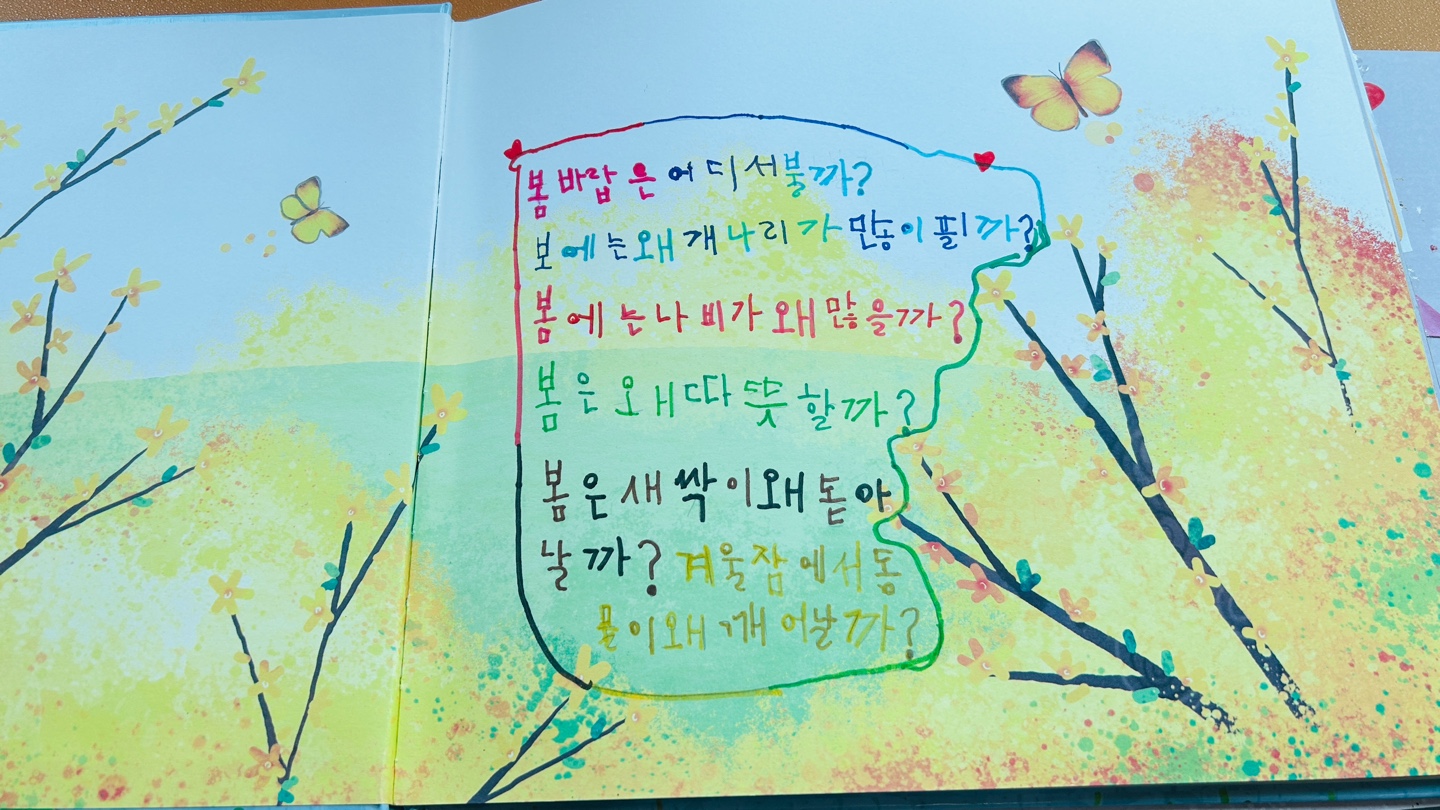 봄 바람은 어디서 불까?
보에는 왜 개나리가 만송이 필까?
봄에는 나비가 왜 많을까?
봄은 왜 따뜻할까?
봄은 새싹이 왜 돋아
날까? 겨울잠에서 동
물이 왜 깨어날까?